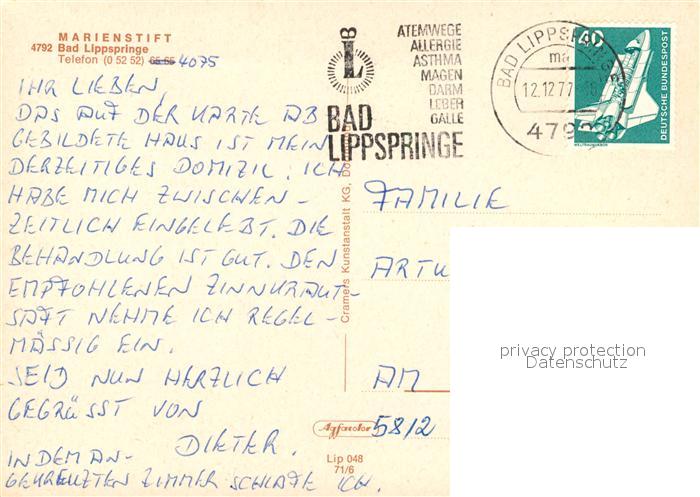 MARIENSTIFT
4792 Bad Lippspringe
Telefon (0 52 52) 65 65 4075
IHR LIEBEN,
DAS AUF DER KARTE AB
GEBILDETE HAUS IST MEIN
DERZEITIGES DOMIZIL. ICH
HABE MICH ZWISCHEN-
ZEITLICH EINGELEBT. DIE
BEHANDLUNG IST GUT. DEN
EMPFOHLENEN ZINNKRAUT-
SAFT NEHME ICH REGEL-
MÄSSIG EIN.
SEID NUN HERZLICH
GEGRÜSST VON
DIETER.
IN DEM AN-
GEKREUZTEN ZIMMER SCHLAFE ICH.
Cramers Kunstanstalt KG,
Agfacolor
Lip 048
71/6
L B
BAD
LIPPSPRINGE
ATEMWEGE
ALLERGIE
ASTHMA
MAGEN
DARM
LEBER
GALLE
BAD LIPPSPRINGE
ma
12.12.77
479
40
DEUTSCHE BUNDESPOST
WELTRAUMLABOR
FAMILIE
ARTU
AM
5812
privacy protection
Datenschutz